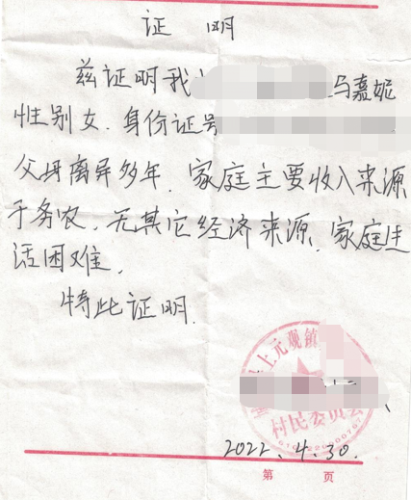 证 明
兹证明我 马嘉妮
性别女.身份证号
父母离异多年.家庭主要收入来源
于务农.无其它经济来源.家庭生
活困难.
特此证明.
上元观镇
村民委员会
2022.4.30.
第 页